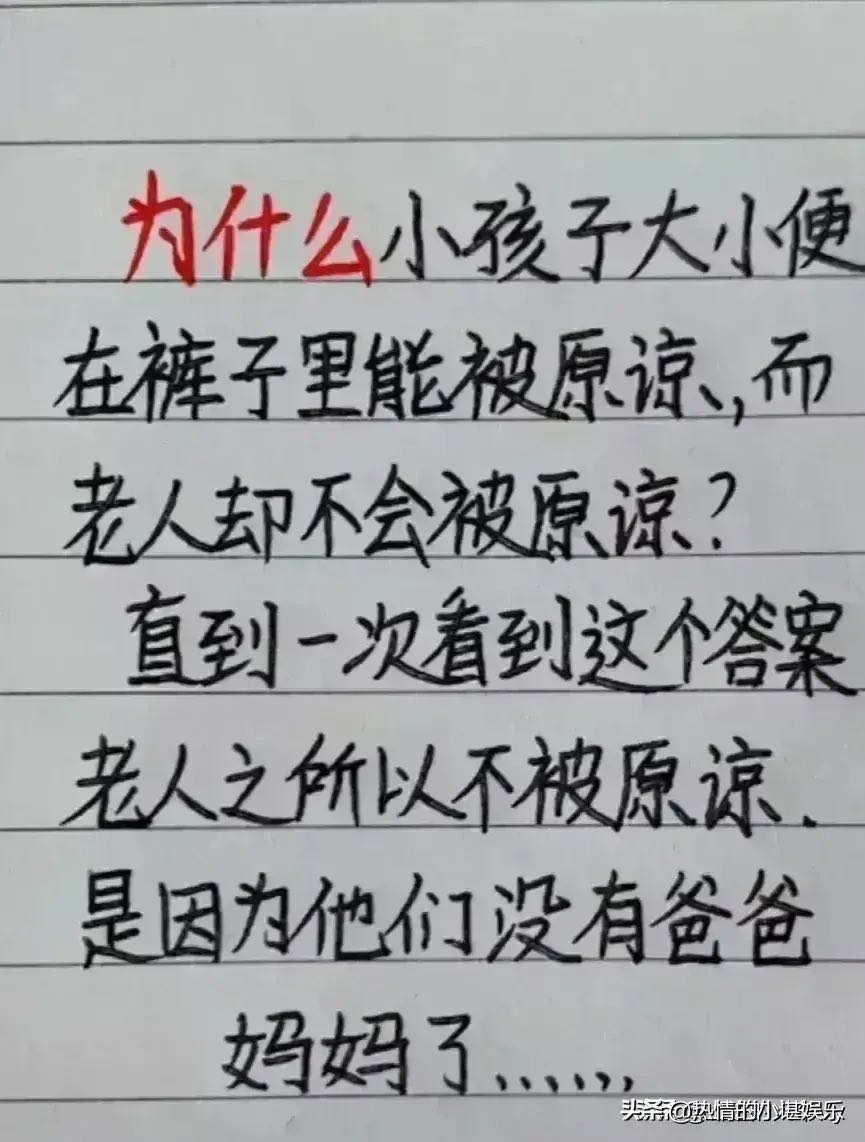 为什么小孩子大小便
在裤子里能被原谅,而
老人却不会被原谅?
直到一次看到这个答案
老人之所以不被原谅.
是因为他们没有爸爸
妈妈了......
头条@热情的小堪娱乐